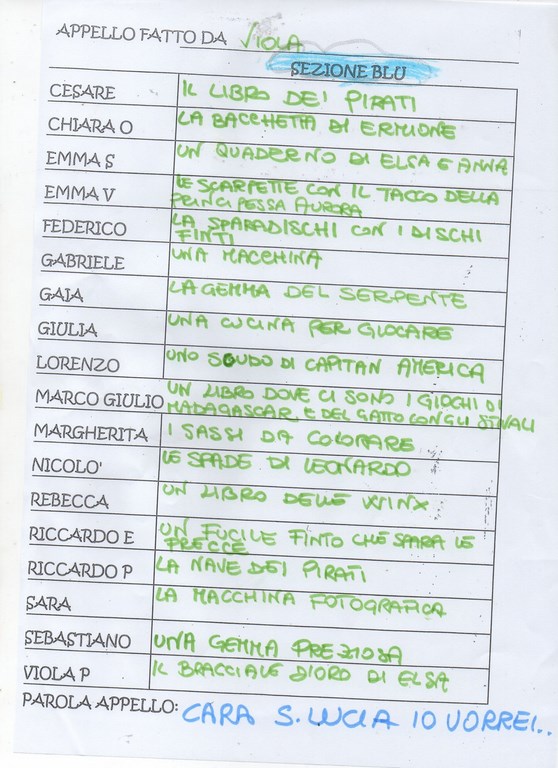 APPELLO FATTO DA VIOLA
SEZIONE BLU
CESARE IL LIBRO DEI PIRATI
CHIARA O LA BACCHETTA DI ERMIONE
EMMA S UN QUADERNO DI ELSA E ANNA
EMMA V LE SCARPETTE CON IL TACCO DELLA
PRINCIPESSA AURORA
FEDERICO LA SPARADISCHI CON I DISCHI
FINTI
GABRIELE UNA MACCHINA
GAIA LA GEMMA DEL SERPENTE
GIULIA UNA CUCINA PER GIOCARE
LORENZO UNO SCUDO DI CAPITAN AMERICA
MARCO GIULIO UN LIBRO DOVE CI SONO I GIOCHI DI
MADAGASCAR E DEL GATTO CON GLI STIVALI
MARGHERITA I SASSI DA COLORARE
NICOLO' LE SPADE DI LEONARDO
REBECCA UN LIBRO DELLE WINX
RICCARDO E UN FUCILE FINTO CHE SPARA LE
FRECCE
RICCARDO P LA NAVE DEI PIRATI
SARA LA MACCHINA FOTOGRAFICA
SEBASTIANO UNA GEMMA PREZIOSA
VIOLA P IL BRACCIALE D'ORO DI ELSA
PAROLA APPELLO: CARA S. LUCIA IO VORREI..